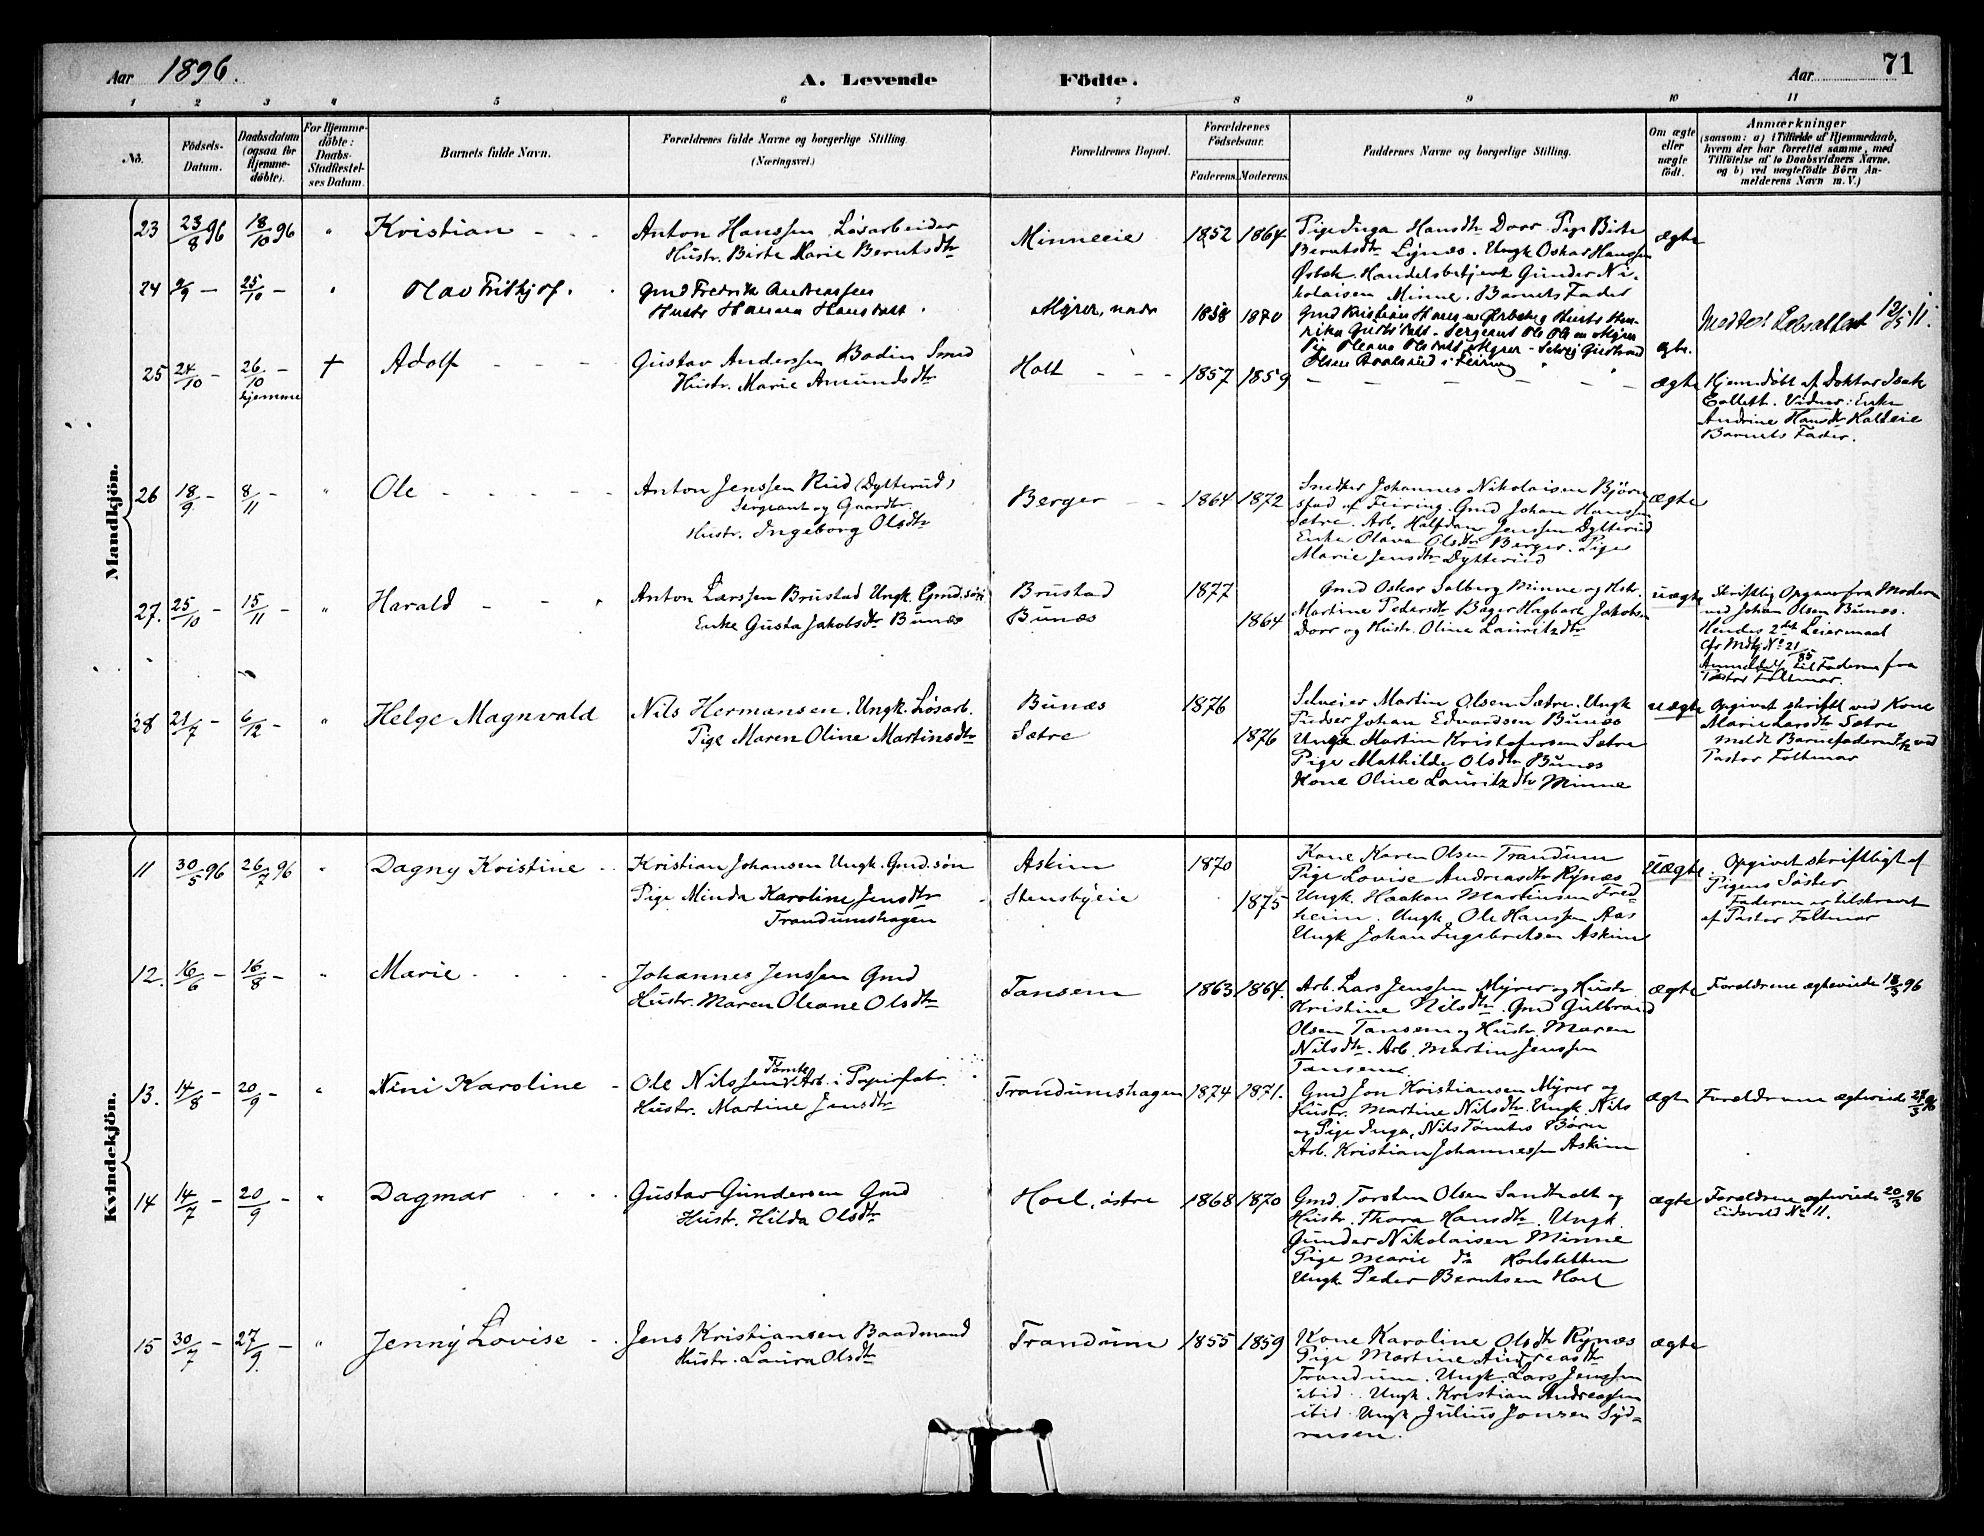 Aar 1896.
A. Levende
Födte.
Aar
71
1 2 3 4 5 6 7 8 9 10 11
No.
Födsels-Datum.
Daabsdatum (ogsaa for Hjemme-döbte).
For Hjemme-döbte: Daabs-Stadfæstel-ses Datum.
Barnets fulde Navn.
Forældrenes fulde Navne og borgerlige Stilling.
(Næringsvei.)
Forældrenes Bopæl.
Forældrenes Födselsaar.
Faderens. Moderens.
Faddernes Navne og borgerlige Stilling.
Om ægte eller uægte födt.
Anmærkninger
(saasom: a) i Tilfælde af Hjemmedaab, hvem der har forrettet samme, med Tilföielse af to Daabsvidners Navne. og b) ved uægtefödte Börn An-melderens Navn m. V.)
Mandkjön.
23 23/8 96 18/10 96 " Kristian - - -
Anton Hanssen, Løsarbeider
Hustr. Birte Marie Berntsdtr
Minneeie 1852 1864
Pige Inga Hansdtr Dorr. Pige Birte
Berntsdtr Lynæs. Ungk Oskar Hanssen
Ørbæk. Handelsbetjent Gunder Ni-
kolaisen Minne. Barnets Fader
ægte
24 2/9 - 25/10 - " Olav Frithjof.
Gmd Fredrik Andreassen
Hustr Hanna Hansdatt.
Myrer, nedr 1858 1870
Gmd Kristian Hansen Ørbæk og Hustr Hen-
rika Guttsdatt. Sergeant Ole Olsen Myrer
Pige Oleava Olsdatt Myrer -
Olsen i Feiring
ægte.
Meddelt Løbsattest 12/5 11.
25 24/10 - 26/10 - hjemme + Adolf - - -
Gustav Anderssen Bodin Smed
Hustr. Marie Amundsdtr
Holt - - - 1857 1859 - - - - - -
ægte
Hjemdøbt af Doktor Isak
Collett. Vidner: Enke
Andrine Hansdtr Holteie
Barnets Fader.
26 18/9 - 8/11 - " Ole - - - - -
Anton Jenssen Rud (Dytterud)
Sergeant og Gaardbr.
Hustr. Ingeborg Olsdtr
Berger - - 1864 1872
Snedker Johannes Nikolaisen Bjørn
stad af Feiring. Gmd Johan Hanssen
Sætre. Arb. Halfdan Jenssen Dytterud
Enke Olava Olsdtr Berger. Pige
Marie Jensdtr Dytterud
ægte
27. 25/10 - 15/11 - " Harald - - "
Anton Larssen Brustad Ungk. Gmd.søn
Enke Gusta Jakobsdtr Bunæs
Brustad 1877
Bunæs 1864
Gmd Oskar Solberg Minne og Hstr.
Martine Pedersdtr Bager Hagbart Jakobsen
Dorr og Hustr. Oline Lauritzdtr
uægte
Skriftlig Opgave fra Moderen
ved Johan Olsen Bunæs.
Hendes 2det Leiermaal
Cfr Mdkj No 21/85
Anmeldt til Faderne fra
Pastor Foltmar.
28 21/7 - 6/12 - " Helge Magnvald
Nils Hermansen. Ungk. Løsarb.
Pige Maren Oline Martinsdtr
Bunæs 1876
Sætre 1876
Selveier Martin Olsen Sætre. Ungk
Pudser Johan Edvardsen Bunæs
Ungk Martin Kristofersen Sætre
Pige Mathilde Olsdtr Bunæs
Kone Oline Lauritzdtr Minne
uægte
Opgivet skriftl ved Kone
Marie Larsdtr Sætre
Meldt Barnefaderen 7/12 ved
Pastor Foltmar
Kvindekjön.
11 30/5 96 26/7 96 " Dagny Kristine - -
Kristian Johansen Ungk. Gmd.søn
Pige Minda Karoline Jensdtr
Trandumshagen
Askim 1870
Stensbyeie 1875
Kone Karen Olsen Trandum
Pige Lovise Andreasdtr Rynæs
Ungk. Haakon Martinsen Fred-
heim. Ungk. Ole Hanssen Aas
Ungk Johan Ingebretsen Askim
Uægte.
Opgivet skriftligt af
Pigens Søster
Faderen er tilskrevet
af Pastor Foltmar
12. 16/6 - 16/8 - " Marie - - - -
Johannes Jenssen Gmd
Hustr. Maren Oleane Olsdtr
Tansem 1863 1864.
Arb. Lars Jenssen Myrer og Hustr
Kristine Nilsdtr. Gmd Gulbrand
Olsen Tansem og Hustr. Maren
Nilsdtr. Arb. Martin Jenssen
Tansem.
ægte
Foreldrene ægteviede 18/3 96
13. 14/8 - 20/9 - " Nini Karoline -
Ole Nilssen Tømte Arb. i Papirfabr.
Hustr. Martine Jensdtr
Trandumshagen 1874 1871.
Gmd Jon Kristiansen Myrer og
Hustr. Martine Nilsdtr. Ungk. Nils
og Pige Inga, Nils Tømtes Børn
Arb. Kristian Johannessen Askim
ægte
Foreldrene ægteviede 27/3 96
14 14/7 - 20/9 - " Dagmar - - -
Gustav Gundersen Gmd
Hustr. Hilda Olsdtr
Hoel, østre 1868 1870
Gmd. Torsten Olsen Sandholt og
Hustr. Thora Hansdtr. Ungk.
Gunder Nikolaisen Minne
Pige Marie do Hoelsletten
Ungk Peder Berntsen Hoel
ægte
Foreldrene ægteviede 20/3 96
Eidsvold No 11.
15 30/7 - 27/9. - " Jenny Lovise - -
Jens Kristiansen Baadmand
Hustr. Laura Olsdtr
Trandum 1855 1859
Kone Karoline Olsdtr Rynæs
Pige Martine Andreasdtr
Trandum. Ungk. Lars Jenssen
ibid. Ungk. Kristian Andreassen
ibid. Ungk Julius Jonsen Syd-
rusen.
ægte